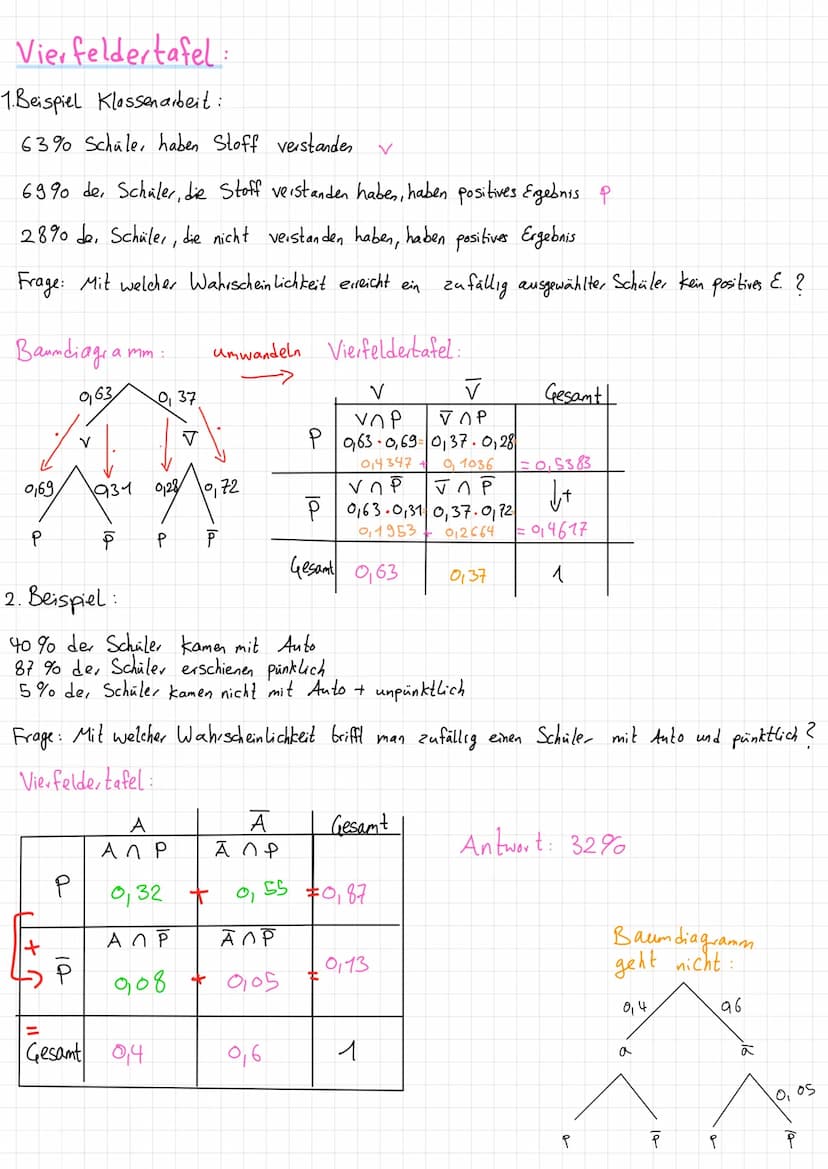 Vierfeldertafel:
1. Beispiel Klassenarbeit:
63% Schüler haben Stoff verstanden V
69% der Schüler, die Stoff verstanden haben, haben positives Ergebnis P
28% der Schüler, die nicht verstanden haben, haben positives Ergebnis
Frage: Mit welcher Wahrscheinlichkeit erreicht ein zufällig ausgewählter Schüler kein positives E. ?
Baumdiagramm: umwandeln Vierfeldertafel:
0,63 0,37
V V̅
0,69 0,31 0,28 0,72
P P̅ P P̅
V V̅ Gesamt
V∩P V̅∩P
P 0,63·0,69= 0,37·0,28
0,4347 + 0,1036 =0,5383
V∩P̅ V̅∩P̅ ↓+
P̅ 0,63·0,31 0,37·0,72
0,1953 + 0,2664 = 0,4617
Gesamt 0,63 0,37 1
2. Beispiel:
40% der Schüler kamen mit Auto
87% der Schüler erschienen pünklich
5% der Schüler kamen nicht mit Auto + unpünktlich
Frage: Mit welcher Wahrscheinlichkeit trifft man zufällig einen Schüler mit Auto und pünktlich?
Vierfeldertafel:
A A̅ Gesamt
A∩P A̅∩P
P 0,32 + 0,55 =0,87
A∩P̅ A̅∩P̅
+ P̅ 0,08 + 0,05 = 0,13
=
Gesamt 0,4 0,6 1
Antwort: 32%
Baumdiagramm
geht nicht:
0,4 0,6
a a̅
0,05
P P̅ P P̅